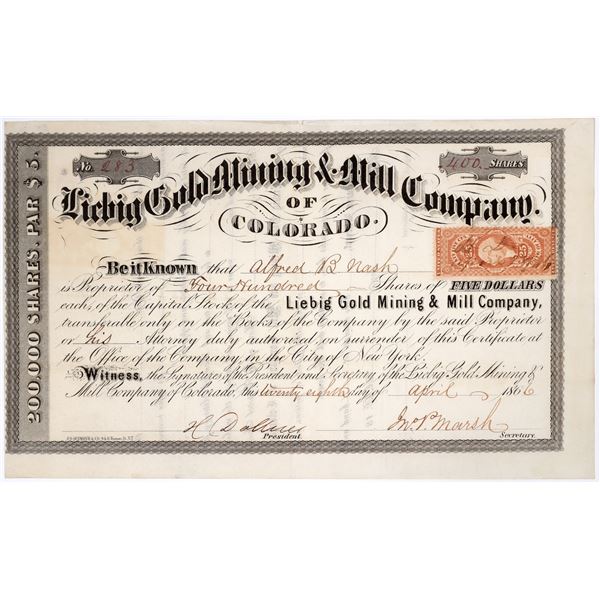 200,000 SHARES, PAR $5.
No. 283
400 SHARES
Liebig Gold Mining & Mill Company.
OF
COLORADO.
Be it Known that Alfred B Nash
is Proprietor of Four Hundred Shares of FIVE DOLLARS
each, of the Capital Stock of the Liebig Gold Mining & Mill Company,
transferable only on the Books of the Company by the said Proprietor
or his Attorney duly authorized, on surrender of this Certificate at
the Office of the Company, in the City of New York.
Witness, the Signatures of the President and Secretary of the Liebig Gold Mining &
Mill Company of Colorado, this twenty eighth day of April 1866
H
President.
Jno. P. Marsh
Secretary.
25
25